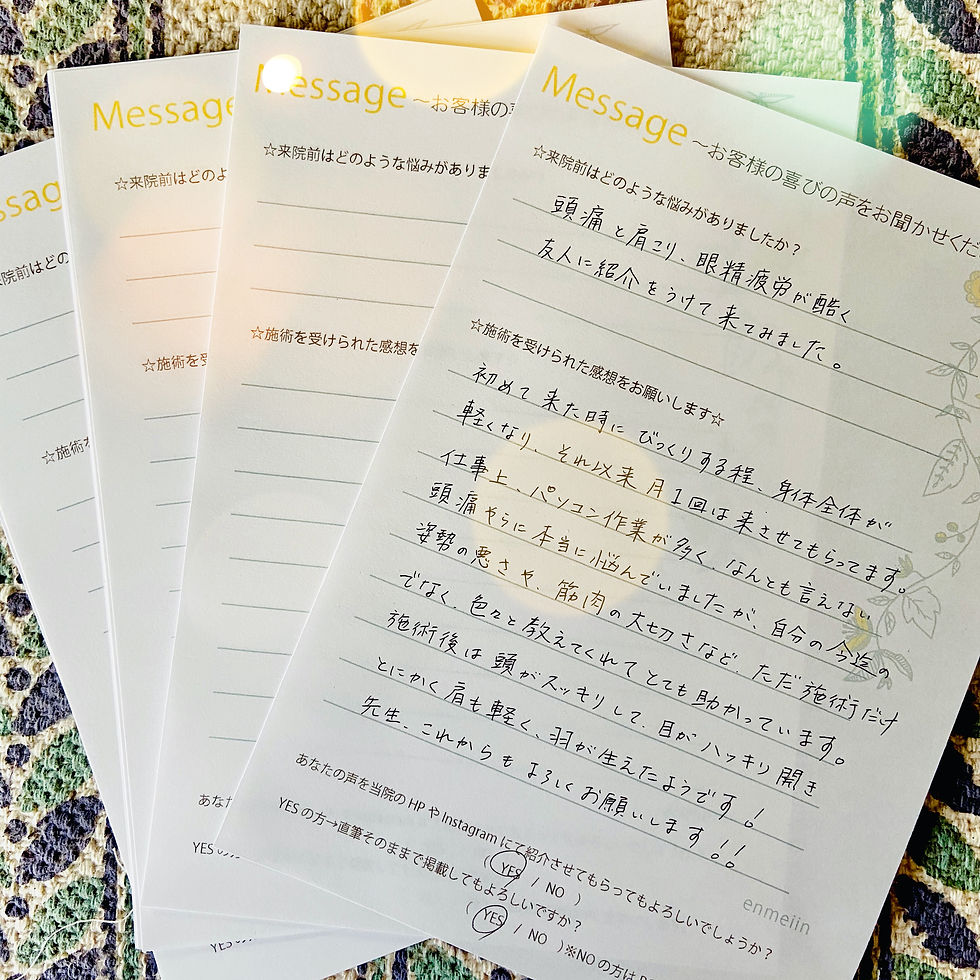 Message ～お客様の喜びの声をお聞かせくだ
☆来院前はどのような悩みがありましたか?
頭痛と肩こり、眼精疲労が酷く
友人に紹介をうけて来てみました。
☆施術を受けられた感想をお願いします☆
初めて来た時にびっくりする程、身体全体が
軽くなり、それ以来月1回は来させてもらってます。
仕事上、パソコン作業が多く、なんとも言えない
頭痛やらに本当に悩んでいましたが、自分の今迄の
姿勢の悪さや、筋肉の大切さなど、ただ施術だけ
でなく、色々と教えてくれてとても助かっています。
施術後は頭がスッキリして、目がハッキリ開き
とにかく肩も軽く、羽が生えたようです!
先生、これからもよろしくお願いします!!
あなたの声を当院のHPやInstagramにて紹介させてもらってもよろしいでしょうか?
( YES / NO )
YESの方→直筆そのままで掲載してもよろしいですか?
( YES / NO )※NOの方は
enmeiin
Message ～お客様の
☆来院前はどのような悩みがありま
☆施術を受けられた感想を
あな
YESの
Message
☆来院前はどの
☆施術を
YESの
ssag
来院前はどの
☆施術